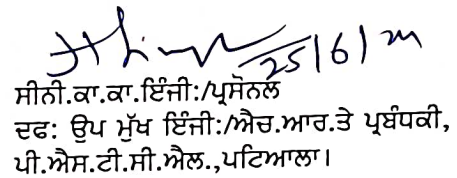 25/6/
ਸੀਨੀ.ਕਾ.ਕਾ.ਇੰਜੀ:/ਪ੍ਰਸੋਨਲ
ਦਫ: ਉਪ ਮੁੱਖ ਇੰਜੀ:/ਐਚ.ਆਰ.ਤੇ ਪ੍ਰਬੰਧਕੀ,
ਪੀ.ਐਸ.ਟੀ.ਸੀ.ਐਲ.,ਪਟਿਆਲਾ।